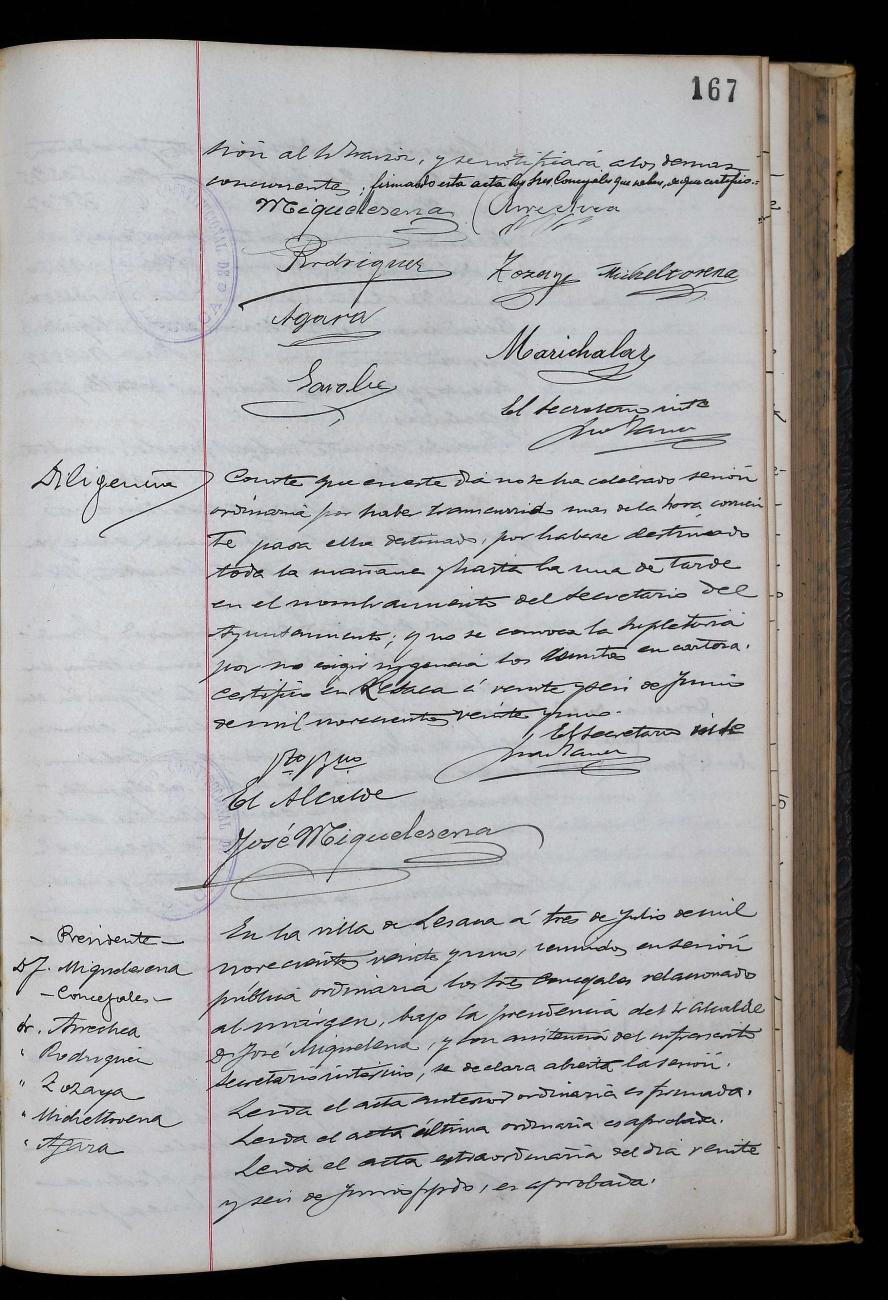 167
sión al Sr. Navior, y se notificará a los demas
concurrentes; firmando esta acta los Sres Concejales que saben, de que certifico.=
Miquelerena Arrechea
Rodriguez
Zozaya Micheltorena
Agara
Marichalar
El Secretario intº
Diligencia
Conste que en este dia no se ha celebrado sesión
ordinaria por haber transcurrido mas de la hora, corrien
te para ella destinado, por haberse destinado
toda la mañana y hasta la una de tarde
en el nombramiento del Secretario del
Ayuntamiento; y no se convoca la supletoria
por no exigir urgencia los asuntos en cartera.
Certifico en Lesaca á veinte y seis de Junio
de mil novecientos veinte y uno.
El Secretario intº
Vto Bno
El Alcalde
José Miquelerena
- Presidente -
D. J. Miquelerena
- Concejales -
Sr. Arrechea
" Rodriguez
" Zozaya
" Michettorena
" Agara
En la villa de Lesaca á tres de Julio de mil
novecientos veinte y uno, reunidos en sesión
pública ordinaria los Sres Concejales relacionado
al márgen, bajo la presidencia del Sr Alcalde
D. José Miquelena, y con asistencia del infrascrito
Secretario interino, se declara abierta la sesión.
Leida el acta anterior ordinaria es firmada.
Leida el acta última ordinaria es aprobada.
Leida el acta extraordinaria del dia veinte
y seis de Junio ppdo, es aprobada.